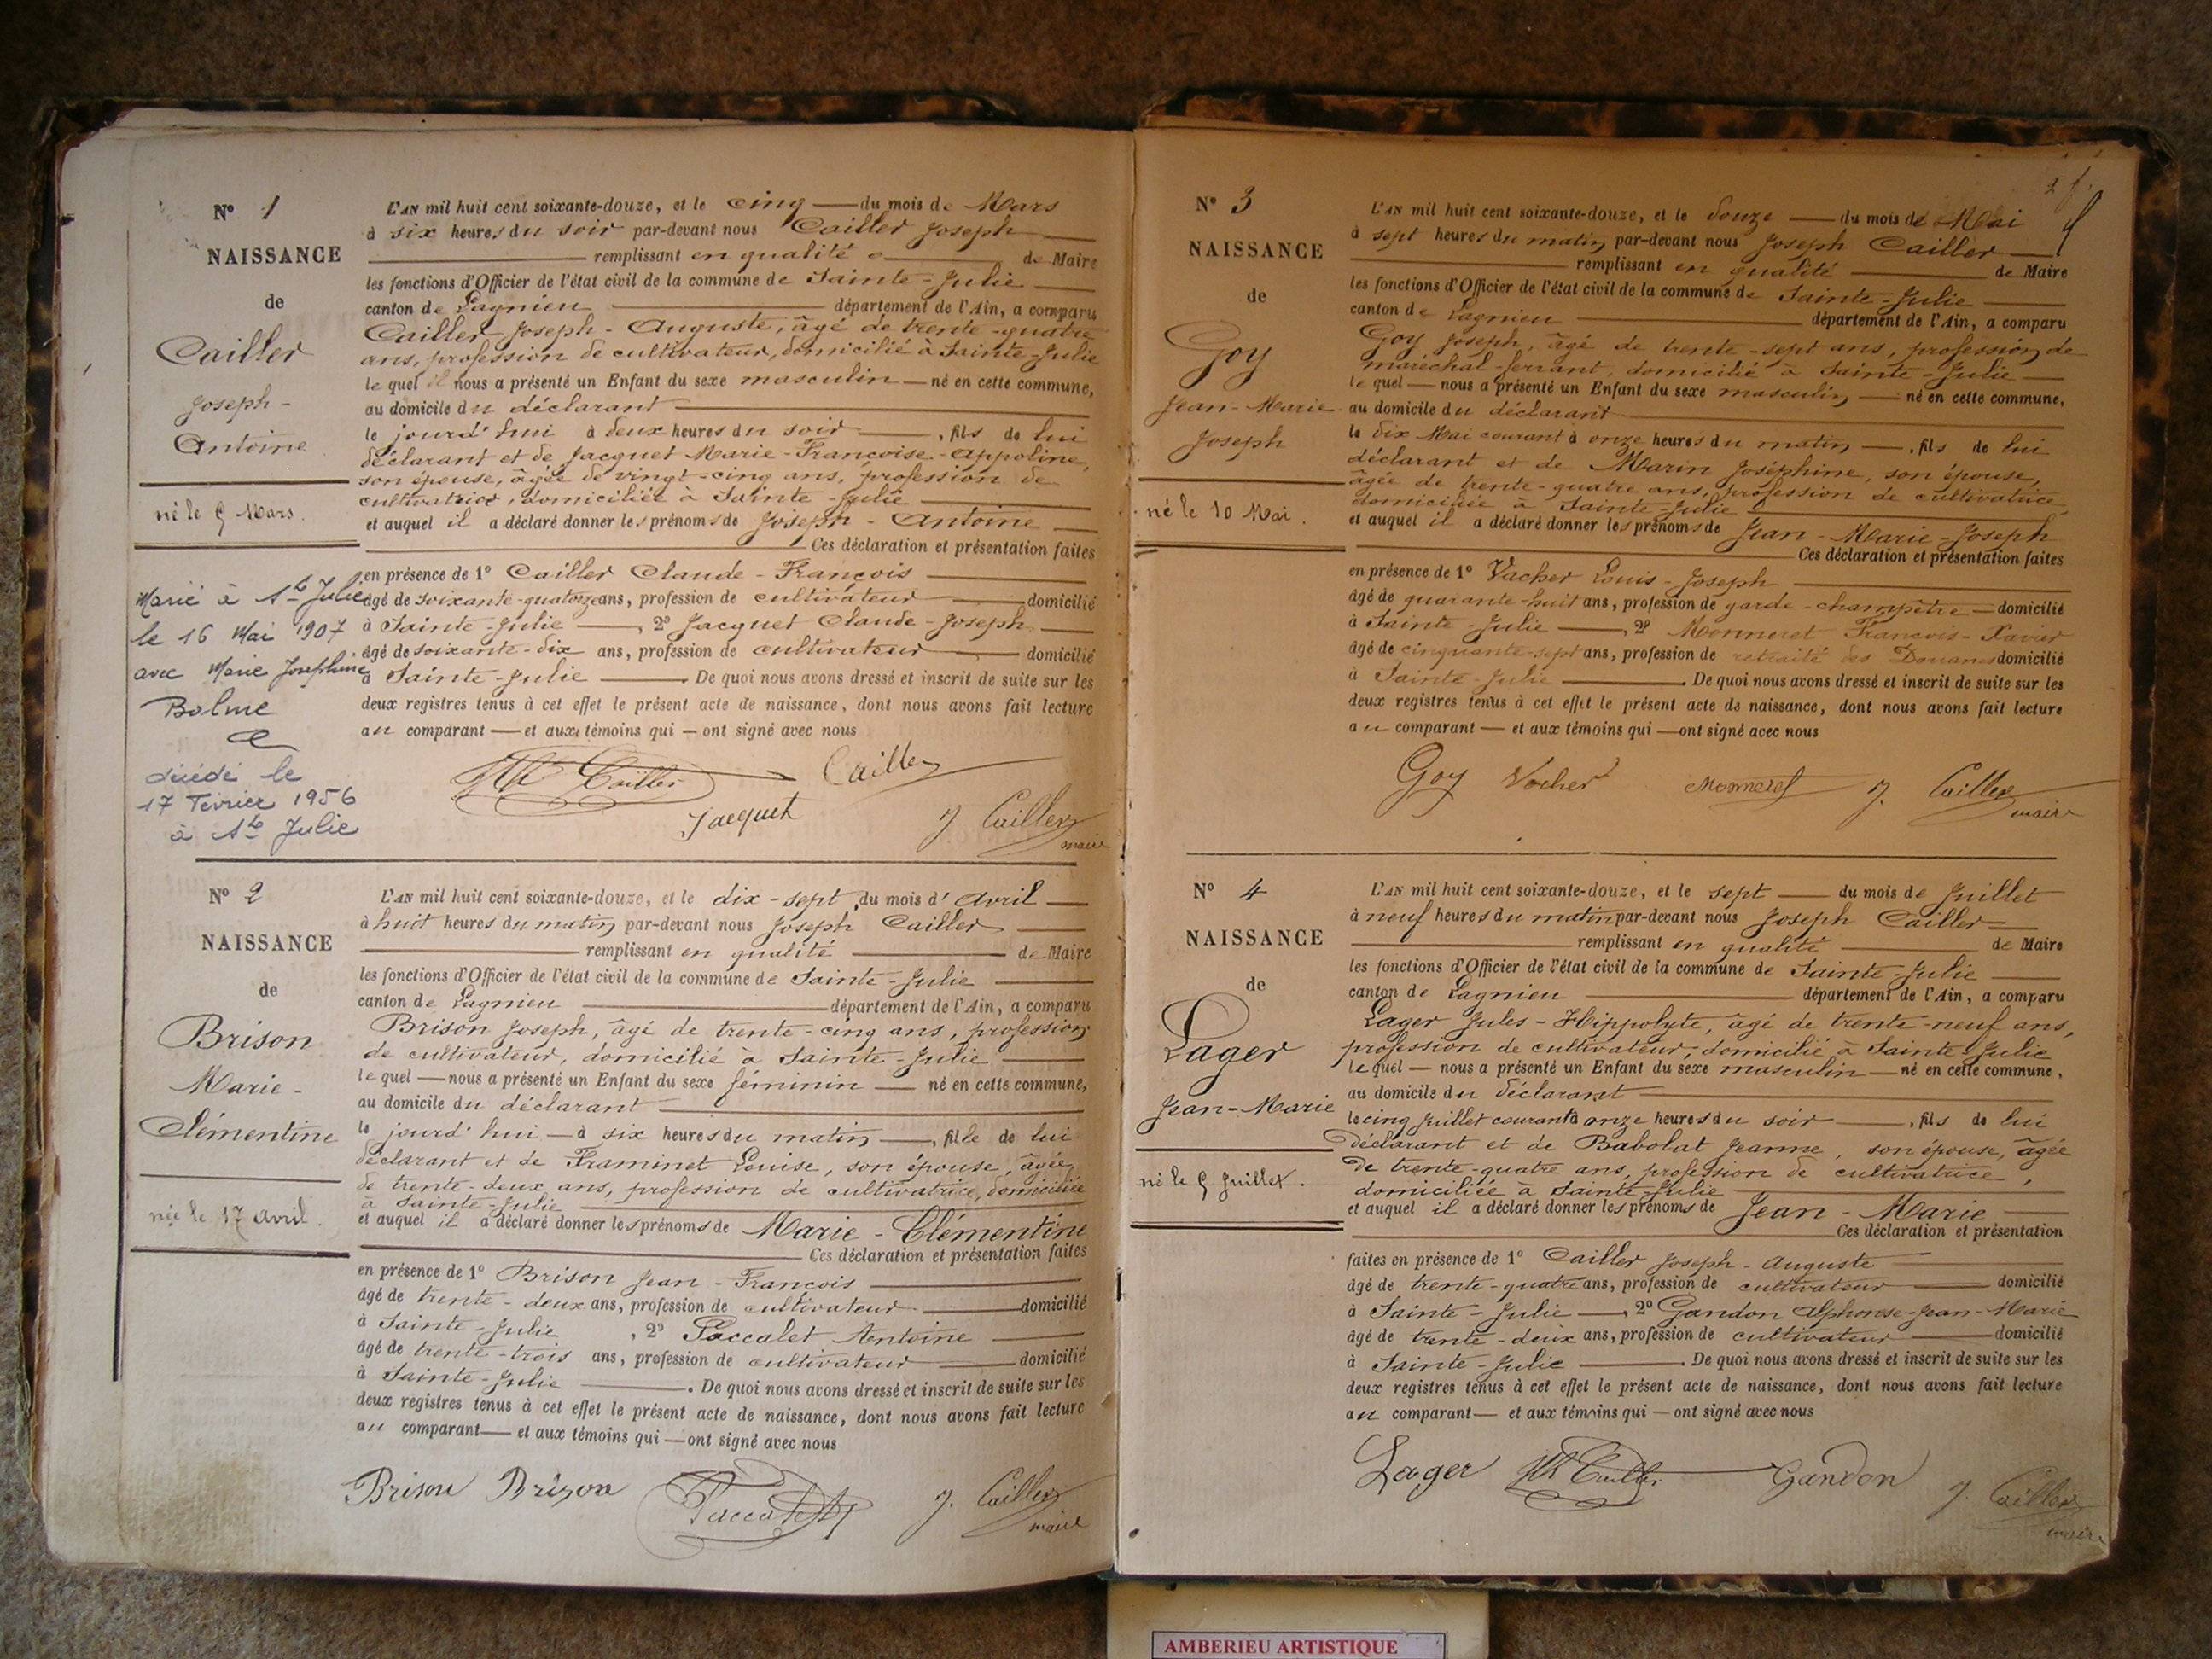 N° 1
NAISSANCE
de
Cailler
Joseph-
Antoine
né le 5 Mars.
Marié à Ste Julie
le 16 Mai 1907
avec Marie Josephine
Bolme
décédé le
17 Février 1956
à Ste Julie
L'AN mil huit cent soixante-douze, et le cinq du mois de Mars
à six heures du soir par-devant nous Cailler Joseph
remplissant en qualité de Maire
les fonctions d'Officier de l'état civil de la commune de Sainte-Julie
canton de Lagnieu département de l'Ain, a comparu
Cailler Joseph-Auguste, âgé de trente-quatre
ans, profession de cultivateur, domicilié à Sainte-Julie
lequel il nous a présenté un Enfant du sexe masculin né en cette commune,
au domicile du déclarant
le jourd'hui à deux heures du soir, fils de lui
déclarant et de Jacquet Marie-Françoise-Appoline,
son épouse, âgée de vingt-cinq ans, profession de
cultivatrice, domiciliée à Sainte-Julie
et auquel il a déclaré donner les prénoms de Joseph-Antoine
Ces déclaration et présentation faites
en présence de 1° Cailler Claude-François
âgé de soixante-quatorze ans, profession de cultivateur domicilié
à Sainte-Julie, 2° Jacquet Claude-Joseph
âgé de soixante-dix ans, profession de cultivateur domicilié
à Sainte-Julie. De quoi nous avons dressé et inscrit de suite sur les
deux registres tenus à cet effet le présent acte de naissance, dont nous avons fait lecture
au comparant et aux témoins qui ont signé avec nous
Cailler Cailler
Jacquet J. Cailler
maire
N° 2
NAISSANCE
de
Brison
Marie-
Clémentine
née le 17 avril.
L'AN mil huit cent soixante-douze, et le dix-sept du mois d'avril
à huit heures du matin par-devant nous Joseph Cailler
remplissant en qualité de Maire
les fonctions d'Officier de l'état civil de la commune de Sainte-Julie
canton de Lagnieu département de l'Ain, a comparu
Brison Joseph, âgé de trente-cinq ans, profession
de cultivateur, domicilié à Sainte-Julie
lequel nous a présenté un Enfant du sexe féminin né en cette commune,
au domicile du déclarant
le jourd'hui à six heures du matin, fille de lui
déclarant et de Framinet Louise, son épouse, âgée
de trente-deux ans, profession de cultivatrice, domiciliée
à Sainte-Julie
et auquel il a déclaré donner les prénoms de Marie-Clémentine
Ces déclaration et présentation faites
en présence de 1° Brison Jean-François
âgé de trente-deux ans, profession de cultivateur domicilié
à Sainte-Julie, 2° Paccalet Antoine
âgé de trente-trois ans, profession de cultivateur domicilié
à Sainte-Julie. De quoi nous avons dressé et inscrit de suite sur les
deux registres tenus à cet effet le présent acte de naissance, dont nous avons fait lecture
au comparant et aux témoins qui ont signé avec nous
Brison Brison Paccalet J. Cailler
maire
N° 3
NAISSANCE
de
Goy
Jean-Marie
Joseph
né le 10 Mai.
L'AN mil huit cent soixante-douze, et le douze du mois de Mai
à sept heures du matin par-devant nous Joseph Cailler
remplissant en qualité de Maire
les fonctions d'Officier de l'état civil de la commune de Sainte-Julie
canton de Lagnieu département de l'Ain, a comparu
Goy Joseph, âgé de trente-sept ans, profession de
maréchal-ferrant, domicilié à Sainte-Julie
lequel nous a présenté un Enfant du sexe masculin né en cette commune,
au domicile du déclarant
le dix Mai courant à onze heures du matin, fils de lui
déclarant et de Marin Joséphine, son épouse,
âgée de trente-quatre ans, profession de cultivatrice,
domiciliée à Sainte-Julie
et auquel il a déclaré donner les prénoms de Jean-Marie-Joseph
Ces déclaration et présentation faites
en présence de 1° Vacher Louis-Joseph
âgé de quarante-huit ans, profession de garde-champêtre domicilié
à Sainte-Julie, 2° Monneret François-Xavier
âgé de cinquante-sept ans, profession de retraité des Douanes domicilié
à Sainte-Julie. De quoi nous avons dressé et inscrit de suite sur les
deux registres tenus à cet effet le présent acte de naissance, dont nous avons fait lecture
au comparant et aux témoins qui ont signé avec nous
Goy Vacher Monneret J. Cailler
maire
N° 4
NAISSANCE
de
Lager
Jean-Marie
né le 5 Juillet.
L'AN mil huit cent soixante-douze, et le sept du mois de Juillet
à neuf heures du matin par-devant nous Joseph Cailler
remplissant en qualité de Maire
les fonctions d'Officier de l'état civil de la commune de Sainte-Julie
canton de Lagnieu département de l'Ain, a comparu
Lager Jules-Hippolyte, âgé de trente-neuf ans,
profession de cultivateur, domicilié à Sainte-Julie
lequel nous a présenté un Enfant du sexe masculin né en cette commune,
au domicile du déclarant
le cinq Juillet courant à onze heures du soir, fils de lui
déclarant et de Babolat Jeanne, son épouse, âgée
de trente-quatre ans, profession de cultivatrice,
domiciliée à Sainte-Julie
et auquel il a déclaré donner les prénoms de Jean-Marie
Ces déclaration et présentation
faites en présence de 1° Cailler Joseph-Auguste
âgé de trente-quatre ans, profession de cultivateur domicilié
à Sainte-Julie, 2° Gandon Alphonse-Jean-Marie
âgé de trente-deux ans, profession de cultivateur domicilié
à Sainte-Julie. De quoi nous avons dressé et inscrit de suite sur les
deux registres tenus à cet effet le présent acte de naissance, dont nous avons fait lecture
au comparant et aux témoins qui ont signé avec nous
Lager Cailler Gandon J. Cailler
maire
AMBERIEU ARTISTIQUE